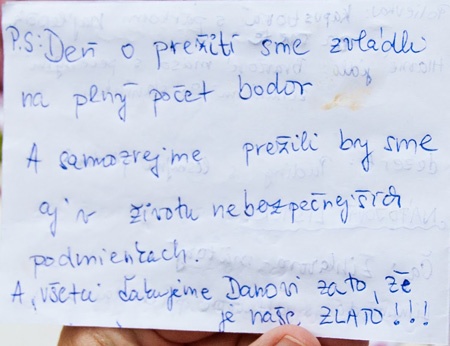 P.S: Deň o prežití sme zvládli
na plný počet bodov
A samozrejme prežili by sme
aj v životu nebezpečnejších
podmienkach.
A, všetci ďakujeme Danovi zato, že
je naše ZLATO!!!